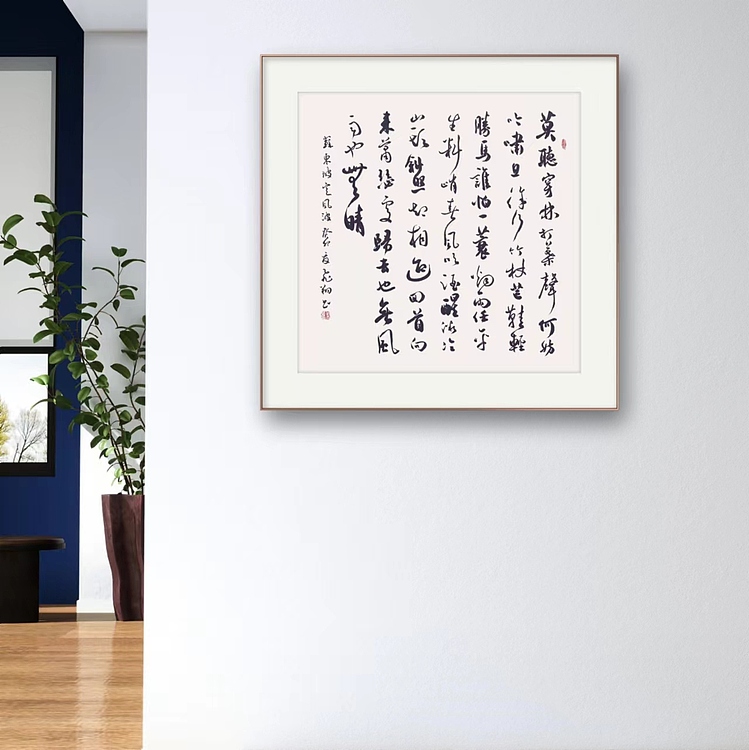 莫聽穿林打葉聲何妨
吟嘯且徐行竹杖芒鞋輕
勝馬誰怕一蓑烟雨任平
生料峭春風吹酒醒微冷
山頭斜照却相迎回首向
来蕭瑟處歸去也無風
雨也無晴
東坡定風波癸卯夏飛翔书